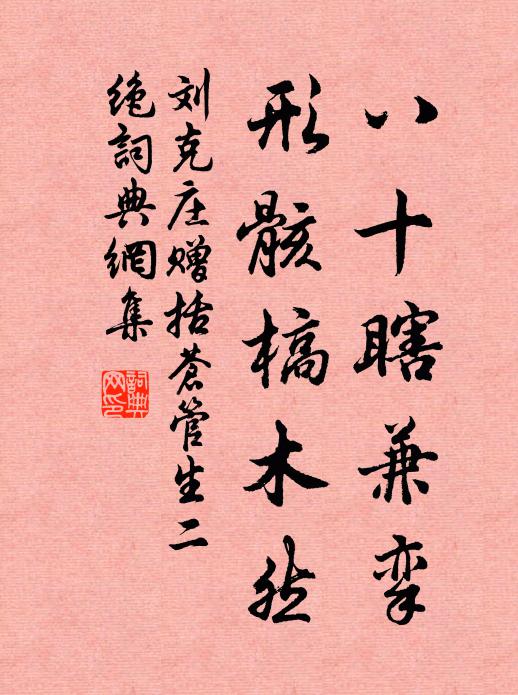 八十瞎兼挛
形骸槁木然
刘克庄赠括蒼管生二
绝詞典網集
詞典
网印